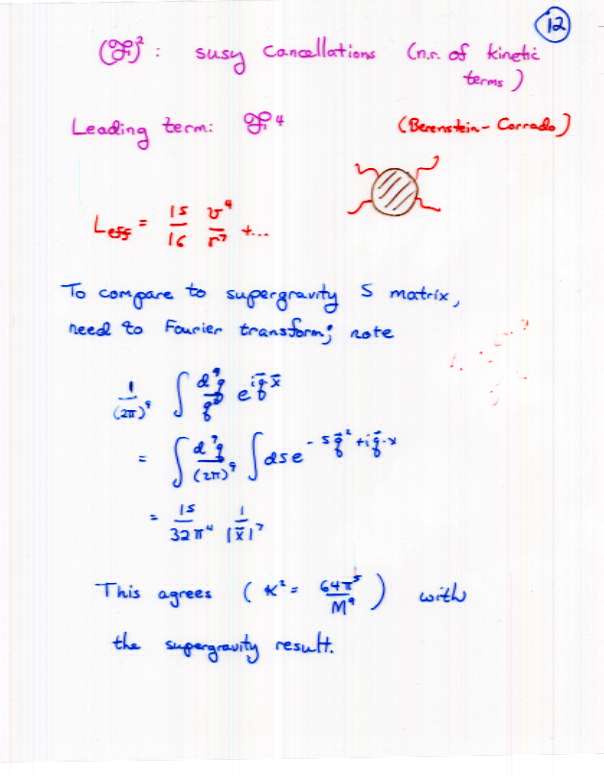 12
(ℱ)² : susy cancellations (n.r. of kinetic
terms)
Leading term: ℱ⁴ (Berenstein-Corrado)
L_eff = 15/16 v⁴/r⁷ +...
To compare to supergravity S matrix,
need to Fourier transform; note
1/(2π)⁹ ∫ d⁹q/q² e^{i q⃗ x⃗}
= ∫ d⁹q/(2π)⁹ ∫ ds e^{-s q⃗² + i q⃗·x}
= 15/32π⁴ 1/|x⃗|⁷
This agrees ( K² = 64π⁵/M⁹ ) with
the supergravity result.